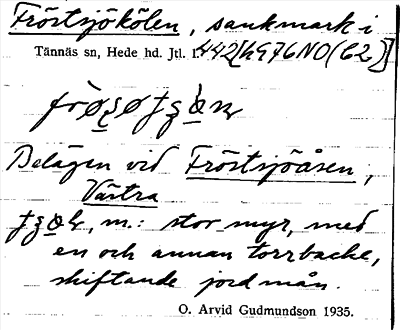 Fröstsjökölen, sankmark i
Tännäs sn, Hede hd. Jtl. l. 442[hg76NO(62)]
Belägen vid Fröstsjöåsen,
Västra
m.: stor myr, med
en och annan torrbacke,
skiftande jordmån.
O. Arvid Gudmundson 1935.